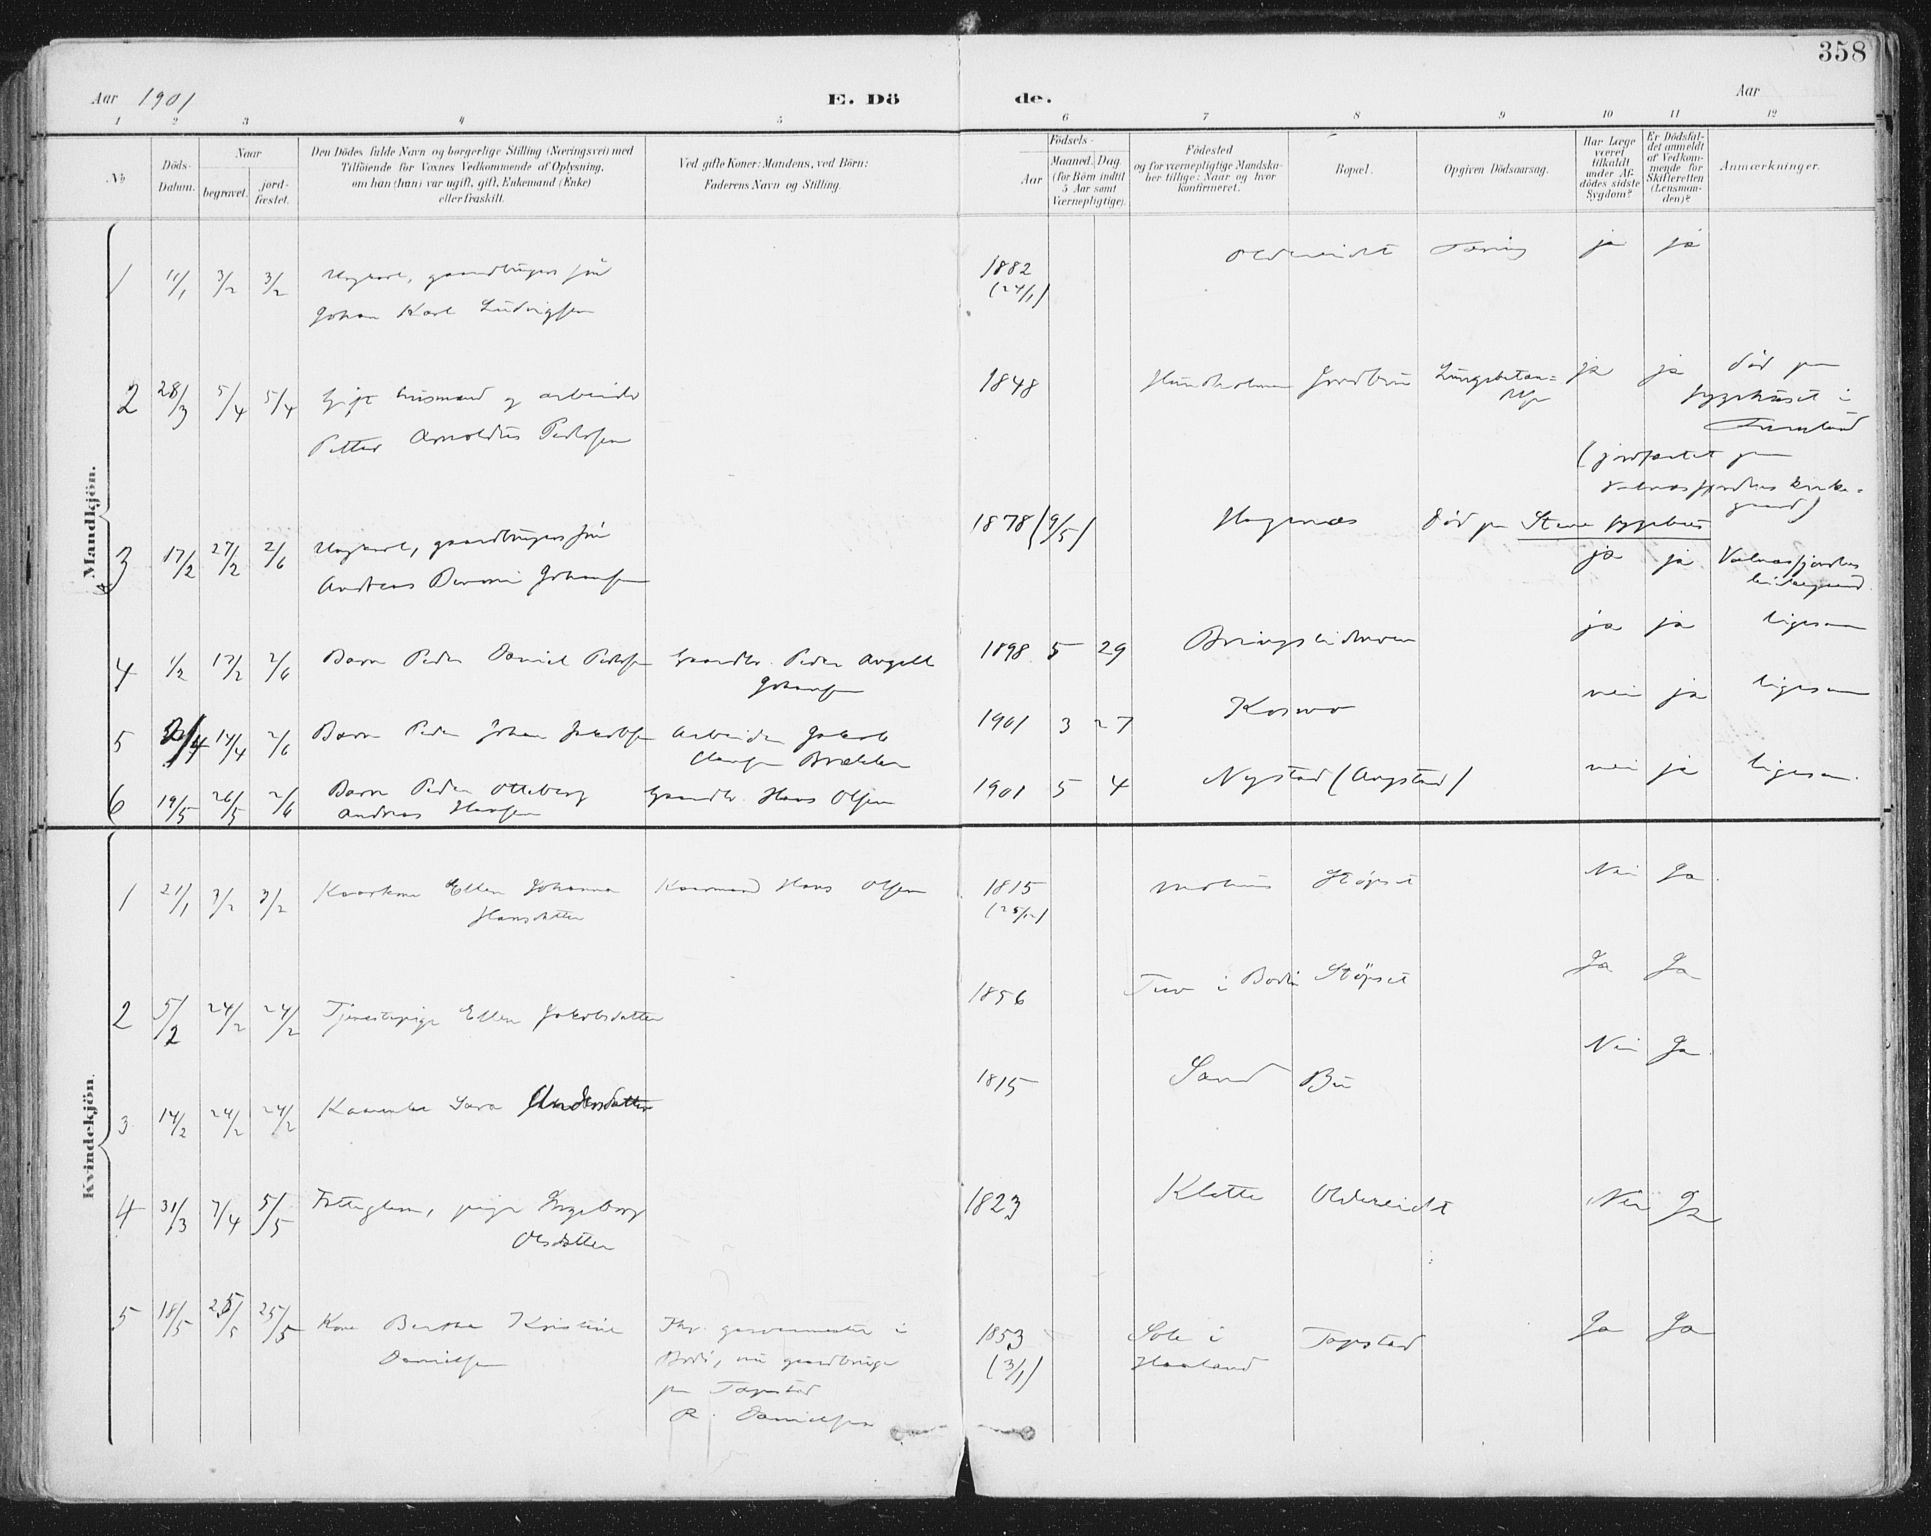 358
Aar 1901
E. Dö de.
Aar
1 2 3 4 5 6 7 8 9 10 11 12
No
Döds-Datum.
Naar
begravet.
jord-fæstet.
Den Dödes fulde Navn og borgerlige Stilling (Næringsvei) med
Tilföiende for Voxnes Vedkommende af Oplysning,
om han (hun) var ugift, gift, Enkemand (Enke)
eller fraskilt.
Ved gifte Koner: Mandens, ved Börn:
Faderens Navn og Stilling.
Födsels-
Aar
Maaned. Dag.
(for Börn indtil
5 Aar samt
Værnepligtige).
Födested
og for værnepligtige Mandska-
ber tillige: Naar og hvor
konfirmeret.
Bopæl.
Opgiven Dödsaarsag.
Har Læge
været
tilkaldt
under Af-
dödes sidste
Sygdom?
Er Dödsfal-
det anmeldt
af Vedkom-
mende for
Skifteretten
(Lensman-
den)?
Anmærkninger.
Mandkjön.
1 11/1 3/2 3/2 Ungkarl, gaardbrugers søn 1882 Oldereidet Tæring ja ja
Johan Karl Ludvigsen (24/1)
2 28/3 5/4 5/4 Gift husmand og arbeider 1848 ja ja død paa
Petter Arnoldus Pedersen sygehuset i
(jordfæstet paa
Valnesfjordens kirke-
gaard)
3 17/2 27/2 2/6 Ungkarl, gaardbrugers søn 1878 (9/5) Hagenæs død paa
Andreas Johansen ja ja Valnesfjordens
kirkegaard
4 1/2 17/2 2/6 Barn Peder Daniel Pedersen Gaardbr. Peder Angell 1898 5 29 ja ja ligesaa
Johansen
5 2/4 14/4 2/6 Barn Peder Johan Jakobsen Arbeider Jakob 1901 3 27 Kosmo nei ja ligesaa
6 19/5 26/5 2/6 Barn Peder Otteberg Gaardbr. Hans Olsen 1901 5 4 Nystad nei ja ligesaa
Andreas Hansen
Kvindekjön.
1 21/1 3/2 3/2 Kaarkone Ellen Johanna Kaarmand Hans Olsen 1815 Støpset Nei Ja
Hansdatter (25/12)
2 5/2 24/2 24/2 Tjenestepige Ellen Jakobsdatter 1856 Tuv i Bodin Støpset Ja Ja
3 14/2 24/2 24/2 Kaarenke Sara Andersdatter 1815 Sand Bu Nei Ja
4 31/3 7/4 5/5 Fattiglem, pige Ingeborg 1823 Klette Oldereidet Nei Ja
Olsdatter
5 18/5 25/5 25/5 Kone Berthe Kristine garvermester i 1853 Sole i Tapstad Ja Ja
Danielsen Bodø, nu gaardbruger (3/1) Haaland
paa Tapstad
R. Danielsen